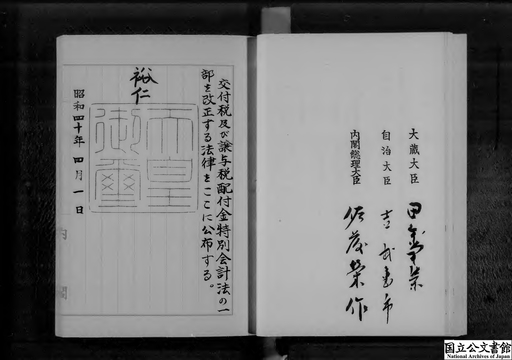 交付税及び譲与税配付金特別会計法の一
部を改正する法律をここに公布する。
裕仁
天皇
御璽
昭和四十年四月一日
大蔵大臣 田中角栄
自治大臣 吉武恵市
内閣総理大臣 佐藤榮作
国立公文書館
National Archives of Japan